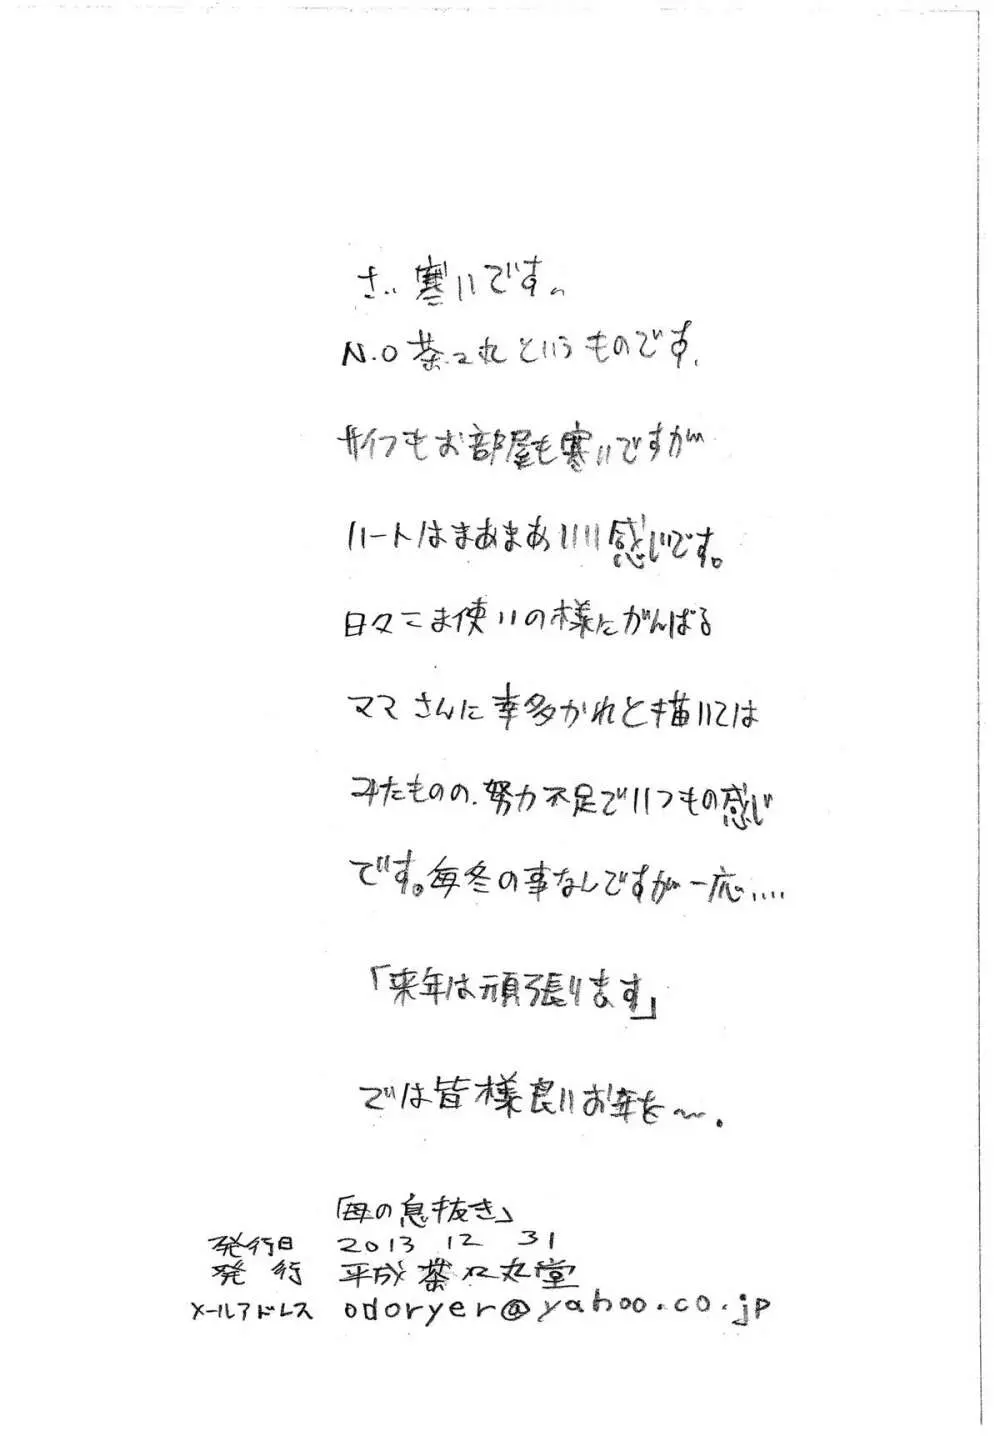 さ、寒いです。
N.O茶々丸というものです。
サイフもお部屋も寒いですが
ハートはまあまあいい感じです。
日々こま使いの様にがんばる
ママさんに幸多かれと描いては
みたものの、努力不足でいつもの感じ
です。毎冬の事なしですが一応....
「来年は頑張ります」
では皆様良いお年を〜.
「母の息抜き」
発行日 2013 12 31
発行 平成茶々丸堂
メールアドレス odoryer@yahoo.co.jp